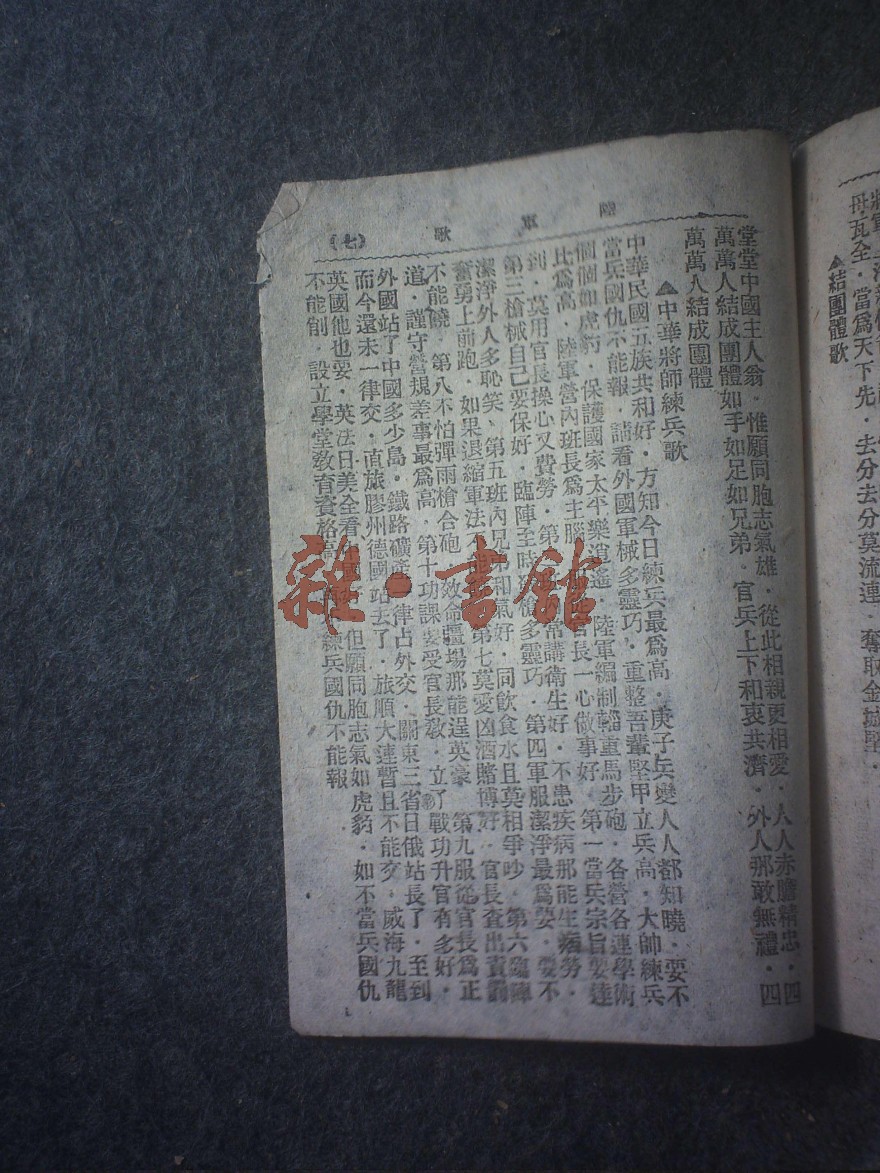 將軍
母瓦全．當爲天下先．去分去分莫流連．奪取金城堅．
▲結團體歌
陸軍歌 (七)
堂堂中國主人翁．惟願同胞志氣雄．從此相親更相愛．人人赤膽精忠．四
萬萬人結成團體如手如足如兄弟．官兵上下和衷共濟．外人那敢無禮．四
萬萬人結成團體
▲中華將師練兵歌
中華民國五族共和好．方知今日練兵最爲高．庚子兵變人人都知曉．要不
當兵國仇不能報．請看外國軍械多靈巧．重整吾輩堅甲立兵高．大帥練兵
個個如虎豹．保護國家太平樂逍遙．陸軍編制輜重馬步砲．各營各連學術
比爲高．陸軍營內班長爲主腦．官長一心做事好．第一當兵宗旨要達
到．莫用官長操心又費勞．第常講衛生好．不患疾病那能生病勞．
第三槍械自己要保好．臨陣至時槍多靈巧．第四軍服潔淨最爲要．要不
潔淨外人多恥笑、第五班內兄和氣好．同飲食水且莫相爭吵．第六臨陣
奮勇上前跑．如果退縮軍法不能第七莫愛凶酒賭博好．官長查出責罰
不能饒．第八不怕彈雨槍合砲．效命疆場那能逞英豪　第九服從官長爲正
道．謹守營規差事最爲高．第十功課要受官長教．立了戰功升官有多好．
外國站了中國多少島．鐵路礦產一律占外交．關東三省日俄站長了．至到
而今還未一律交．直旅膠州德國站去了．旅順大連暫且不能交．威海九龍
英國他也要．英法日美全看中國好　但願同胞志氣如虎豹．如不當兵國仇
不能削．設立學堂教育資格高．練兵國仇不能報
雜·書館